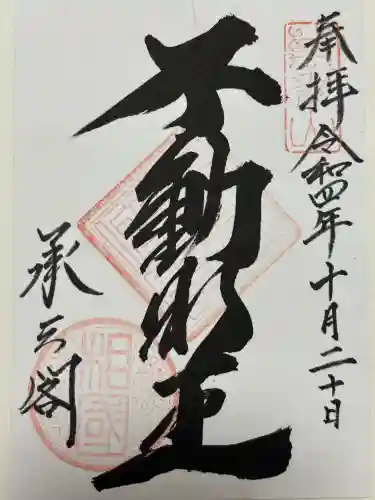 奉拝
令和四年十月二十日
不動明王
承天閣
相國